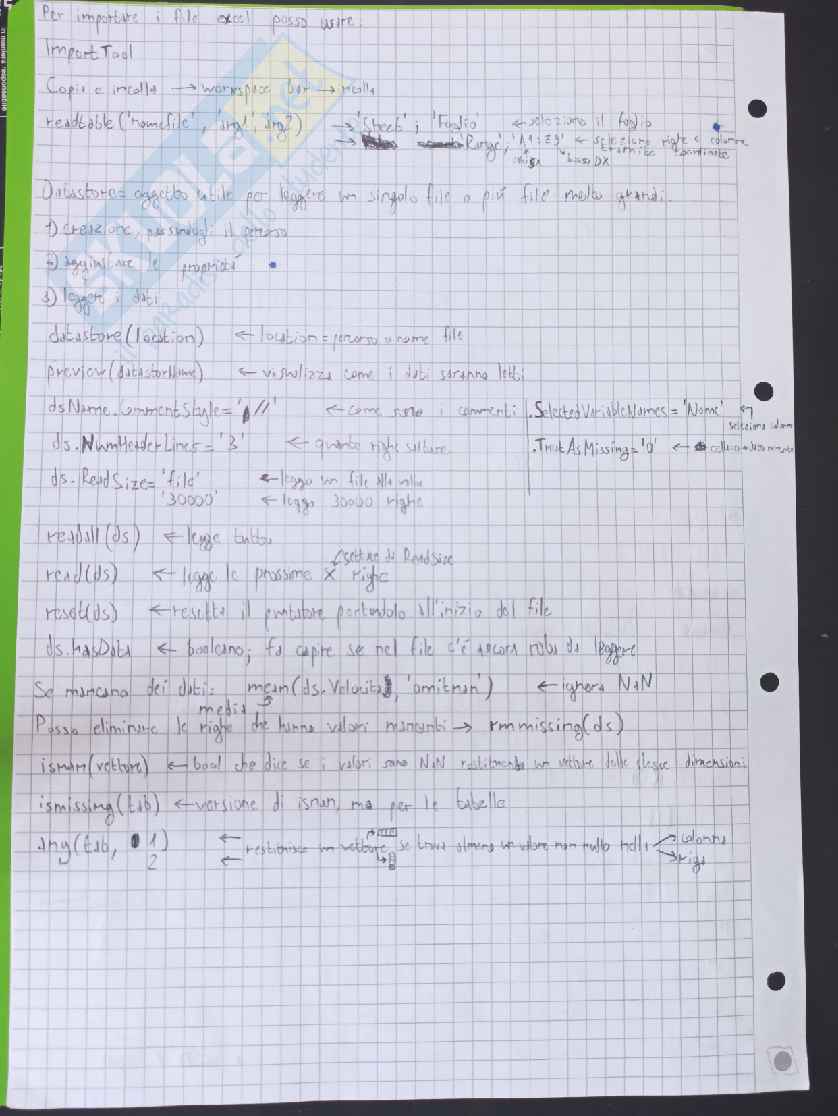 Per importare i file excel posso usare:
ImportTool
Copia e incolla → workspace → incolla
readtable('nomefile', 'arg1', arg2) → 'Sheet'; 'Foglio' ← seleziono il foglio
→ 'Range', 'A1:Z9' ← seleziono righe e colonne
tramite coordinate
Datastore= oggetto utile per leggere un singolo file o più file molto grandi.
1) creazione, passandogli il percorso
2) aggiustare le proprietà
3) leggere i dati
datastore(location) ← location = percorso o nome file
preview(datastoreName) ← visualizza come i dati saranno letti
dsName.CommentStyle='//' ← come sono i commenti .SelectedVariableNames = 'Nome' ←
seleziono colonna
ds.NumHeaderLines='3' ← quante righe saltare .TreatAsMissing='0' ←
ds.ReadSize='file' ← leggo un file alla volta
'30000' ← leggo 30000 righe
readall(ds) ← legge tutto
settare da ReadSize
read(ds) ← legge le prossime X righe
reset(ds) ← resetta il puntatore portandolo all'inizio del file
ds.hasData ← booleano; fa capire se nel file c'è ancora roba da leggere
Se mancano dei dati: mean(ds.Velocita, 'omitnan') ← ignora NaN
media
Posso eliminare le righe che hanno valori mancanti → rmmissing(ds)
isnan(vettore) ← bool che dice se i valori sono NaN restituendo un vettore delle stesse dimensioni
ismissing(tab) ← versione di isnan, ma per le tabelle
any(tab, 1) ← restituisce un vettore se trova almeno un valore non nullo nella → colonna
2 ← → riga
skuola.net
il paradiso dello studente